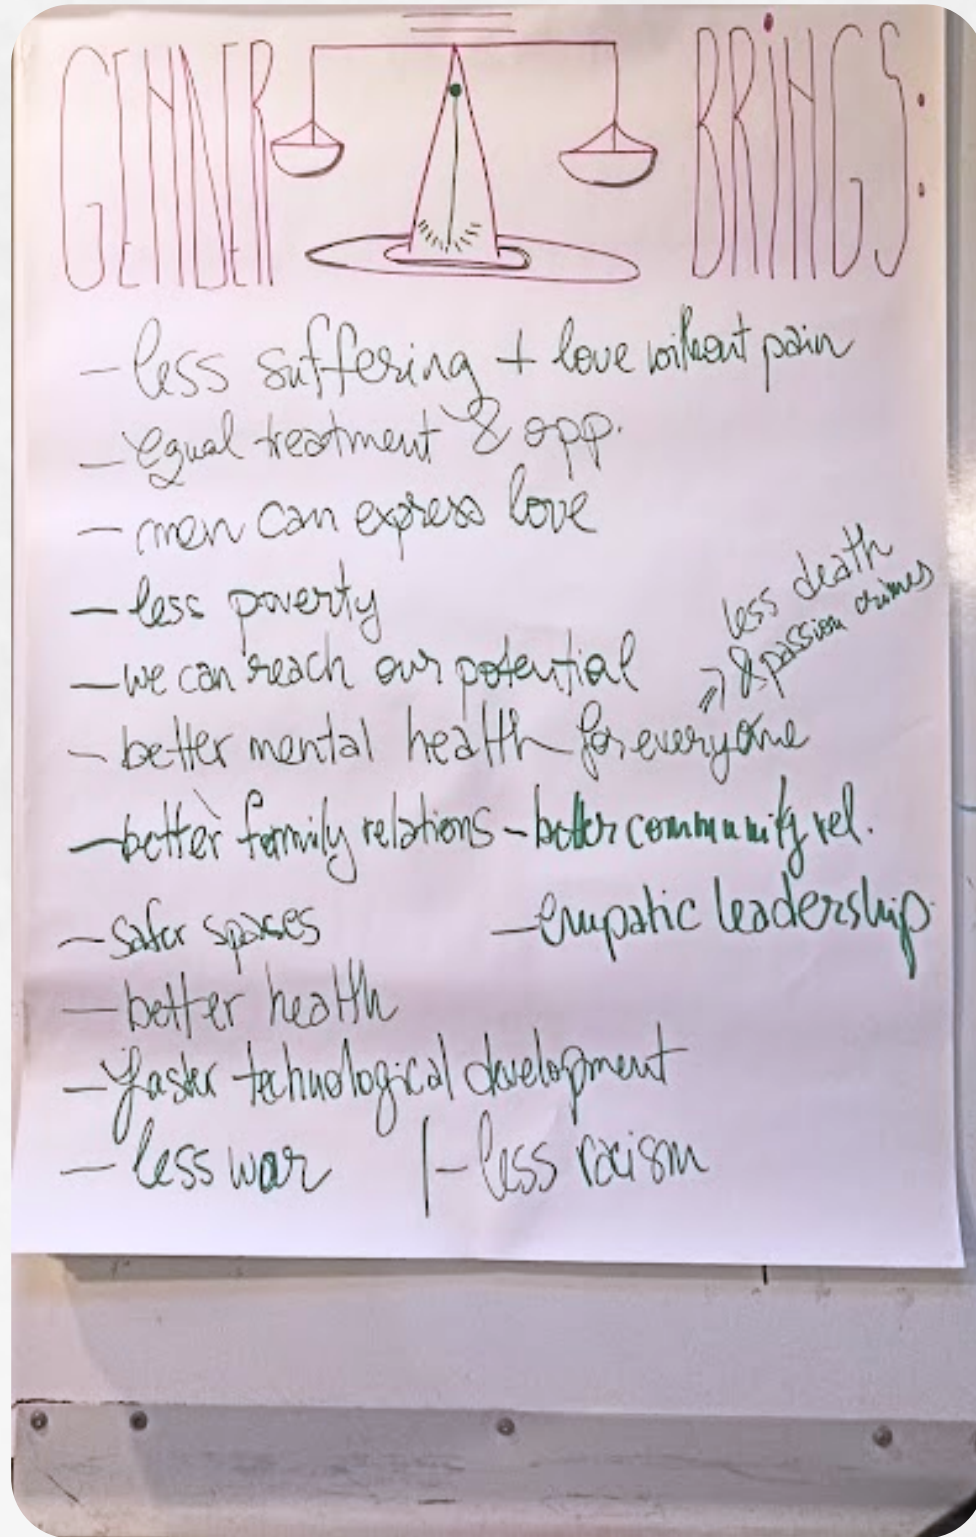 GENDER BRINGS:
- less suffering + love without pain
- equal treatment & opp.
- men can express love
- less poverty
- we can reach our potential
- better mental health for everyone
⇒ less death
& passion crimes
- better family relations - better community rel.
- safer spases - empatic leadership
- better health
- faster technological development
- less war |- less racism